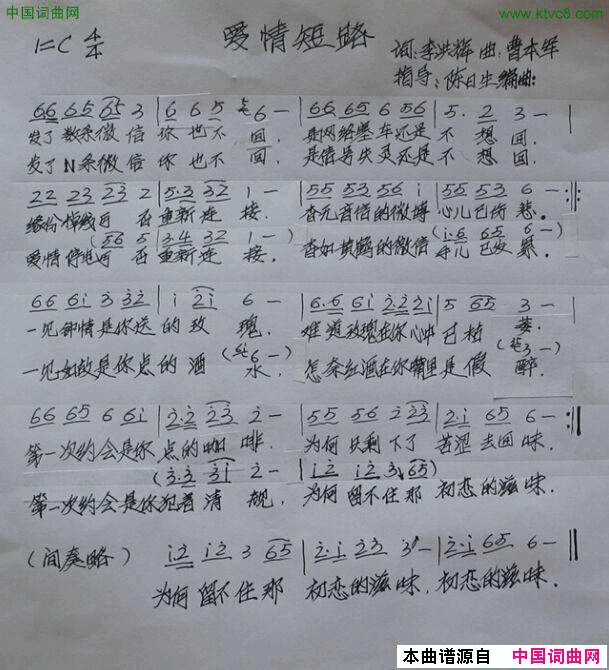 中国词曲网
www.ktvc8.com
1=C 4/4 爱情短路 词:李洪辉 曲:曹本军
指导:陈日生 编曲:
66 65 65 3 | 6 6 5 6 — | 66 65 6 56 | 5. 2 3 — |
发了数条微信 你也不回. 是网络塞车还是不想回.
发了N条微信 你也不回. 是信号失灵还是不想回.
22 23 23 2 | 5·3 32 1 — | 55 53 56 i | 55 53 6 — :||
缘份掉线可否重新连接. 杳无音信的微博心儿已伤悲.
(56 5 | 3·4 32 1 —) (i·6 65 6 —)
爱情停电可否重新连接. 杳如黄鹤的微信
66 6i 3 32 | i 2i 6 — | 6·6 6i 2·22i | 5 65 3 — |
一见钟情是你送的玫瑰. 难道玫瑰在你心中已枯萎.
一见如故是你点的酒水. 怎奈红酒在你嘴里是假醉.
66 65 6 6i | 2·2 23 2 — | 55 56 2 23 | 2·i 65 6 — :||
第一次约会是你点的咖啡. 为何只剩下了苦涩去回味.
(3·3 3i 2 — | i2 i2 3 65)
第一次约会是你犯着清规. 为何留不住那初恋的滋味.
(间奏略) i2 i2 3 65 | 2·i 23 3 — | 2·i 65 6 — ||
为何留不住那 初恋的滋味, 初恋的滋味.
本曲谱源自 中国词曲网